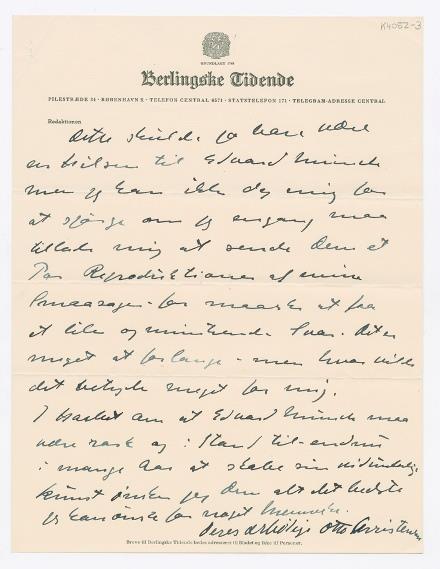 K4052-3
GRUNDLAGT 1749
Berlingske Tidende
PILESTRÆDE 34 · KØBENHAVN K · TELEFON CENTRAL 6571 · STATSTELEFON 171 · TELEGRAM-ADRESSE CENTRAL
Redaktionen
Dette skulde jo bare være
en hilsen til Edvard Munch
men jeg kan ikke dy mig for
at spørge om jeg engang maa
tillade mig at sende Dem et
Par Reproduktioner af mine
Smaasager - for maaske at faa
et lille opmuntrende Svar. Det er
meget at forlange - men hvor vilde
det betyde meget for mig.
I haabet om at Edvard Munch maa
være rask og i Stand til endnu
i mange Aar at skabe sin vidunderlige
kunst ønsker jeg Dem alt det bedste
jeg kan ønske for noget Menneske.
Deres ærbødige Otto Christensen
Breve til Berlingske Tidende bedes adresseret til Bladet og ikke til Personer.